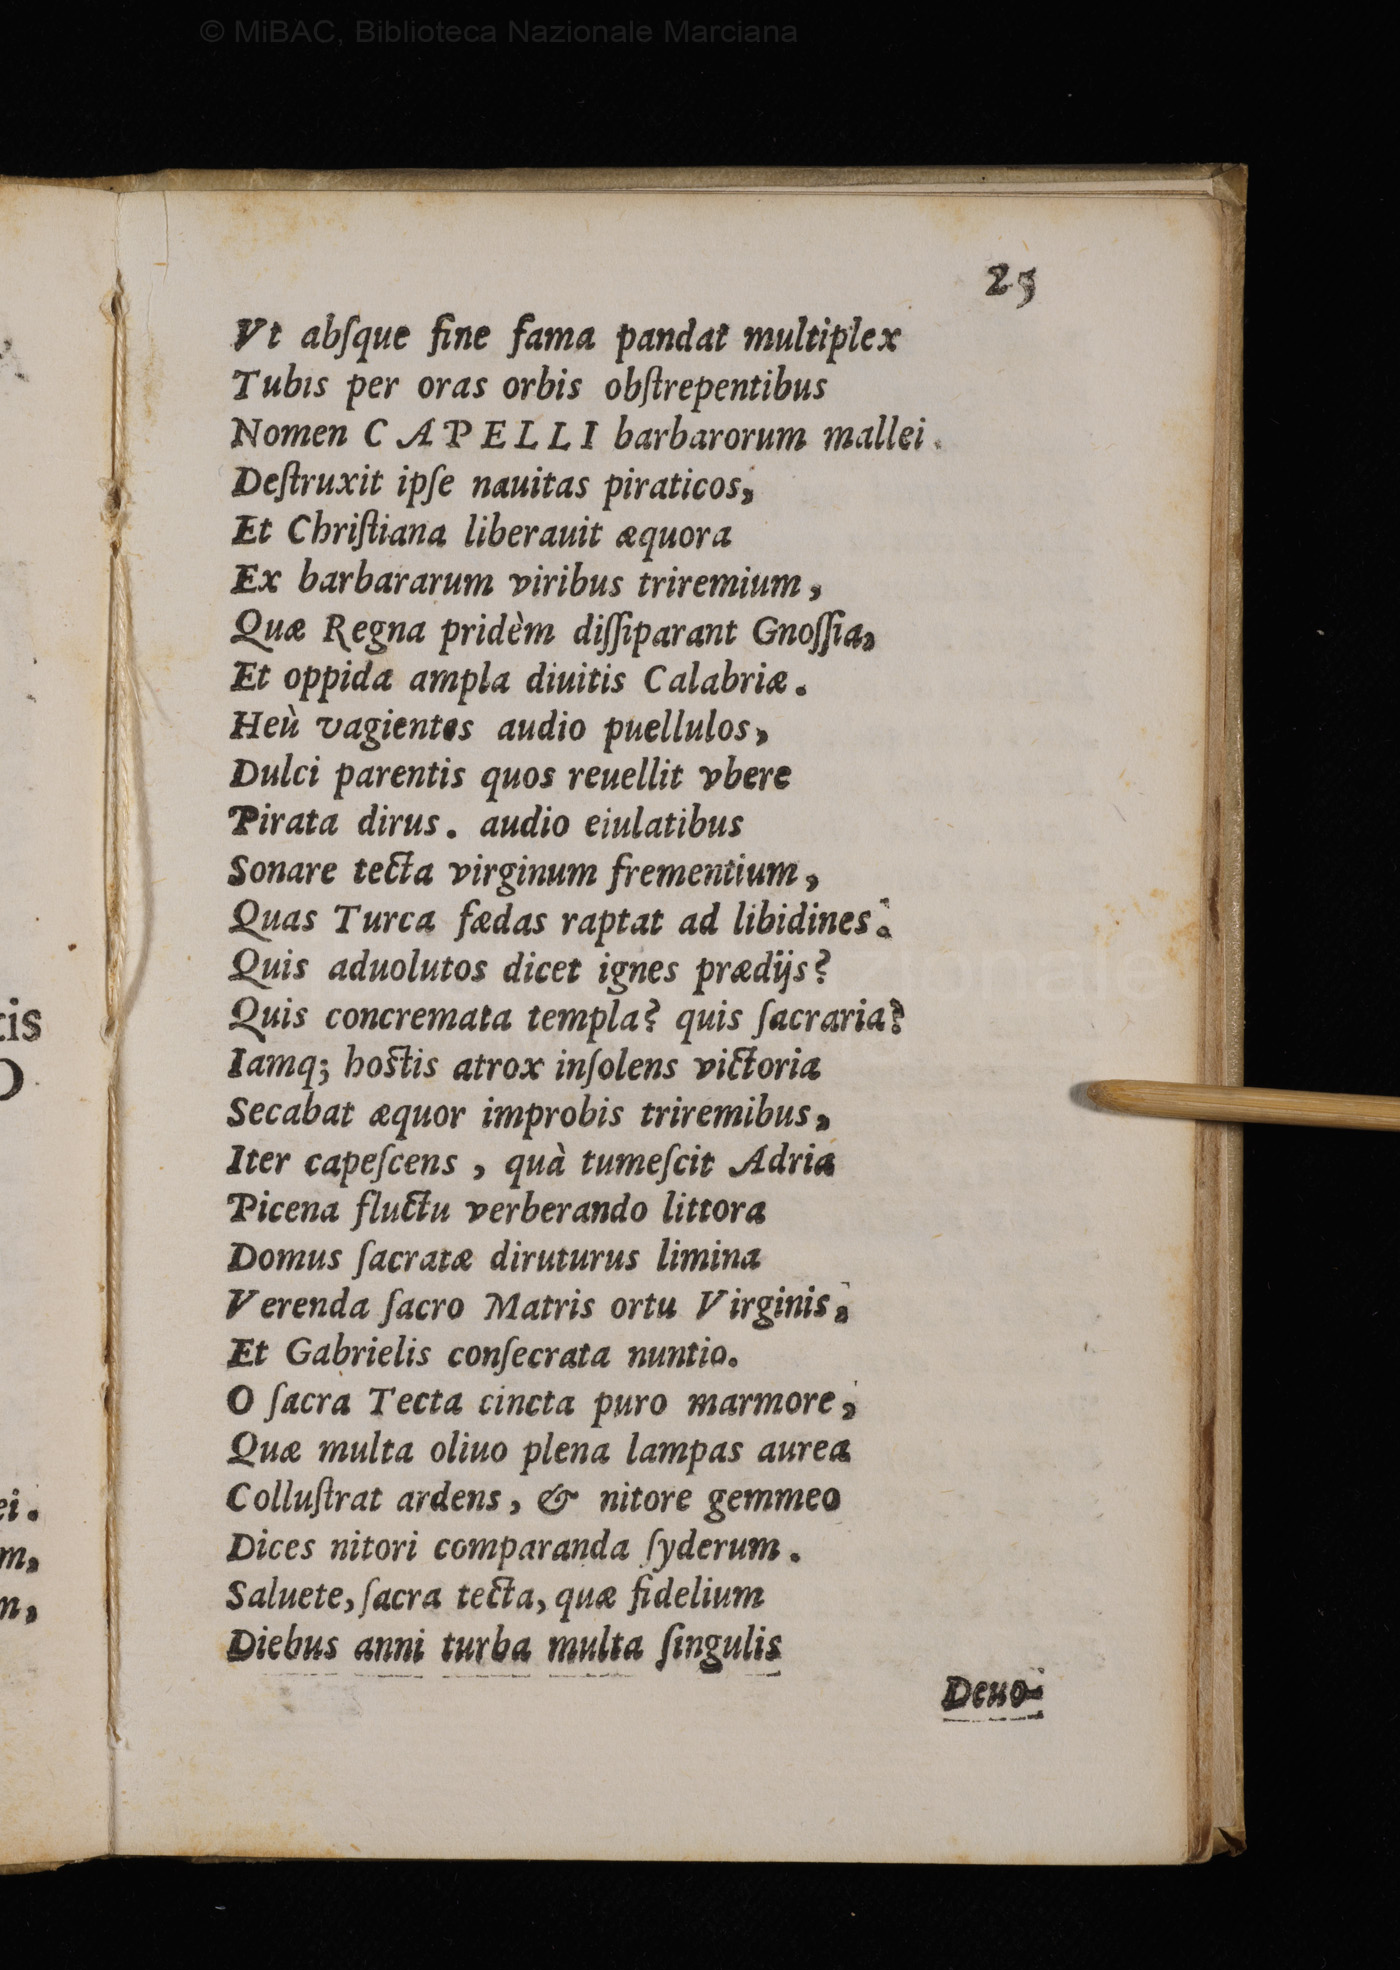 © MiBAC, Biblioteca Nazionale Marciana
25
Vt abſque fine fama pandat multiplex
Tubis per oras orbis obſtrepentibus
Nomen CAPELLI barbarorum mallei.
Deſtruxit ipſe nauitas piraticos,
Et Chriſtiana liberauit æquora
Ex barbararum viribus triremium,
Quæ Regna pridèm diſſiparant Gnoſſia,
Et oppida ampla diuitis Calabriæ.
Heù vagientes audio puellulos,
Dulci parentis quos reuellit vbere
Pirata dirus. audio eiulatibus
Sonare tecta virginum frementium,
Quas Turca fædas raptat ad libidines.
Quis aduolutos dicet ignes prædijs?
Quis concremata templa? quis ſacraria?
Iamq; hostis atrox inſolens victoria
Secabat æquor improbis triremibus,
Iter capeſcens, quà tumeſcit Adria
Picena fluctu verberando littora
Domus ſacratæ diruturus limina
Verenda ſacro Matris ortu Virginis,
Et Gabrielis conſecrata nuntio.
O ſacra Tecta cincta puro marmore,
Quæ multa oliuo plena lampas aurea
Colluſtrat ardens, & nitore gemmeo
Dices nitori comparanda ſyderum.
Saluete, ſacra tecta, quæ fidelium
Diebus anni turba multa ſingulis
Deuo-